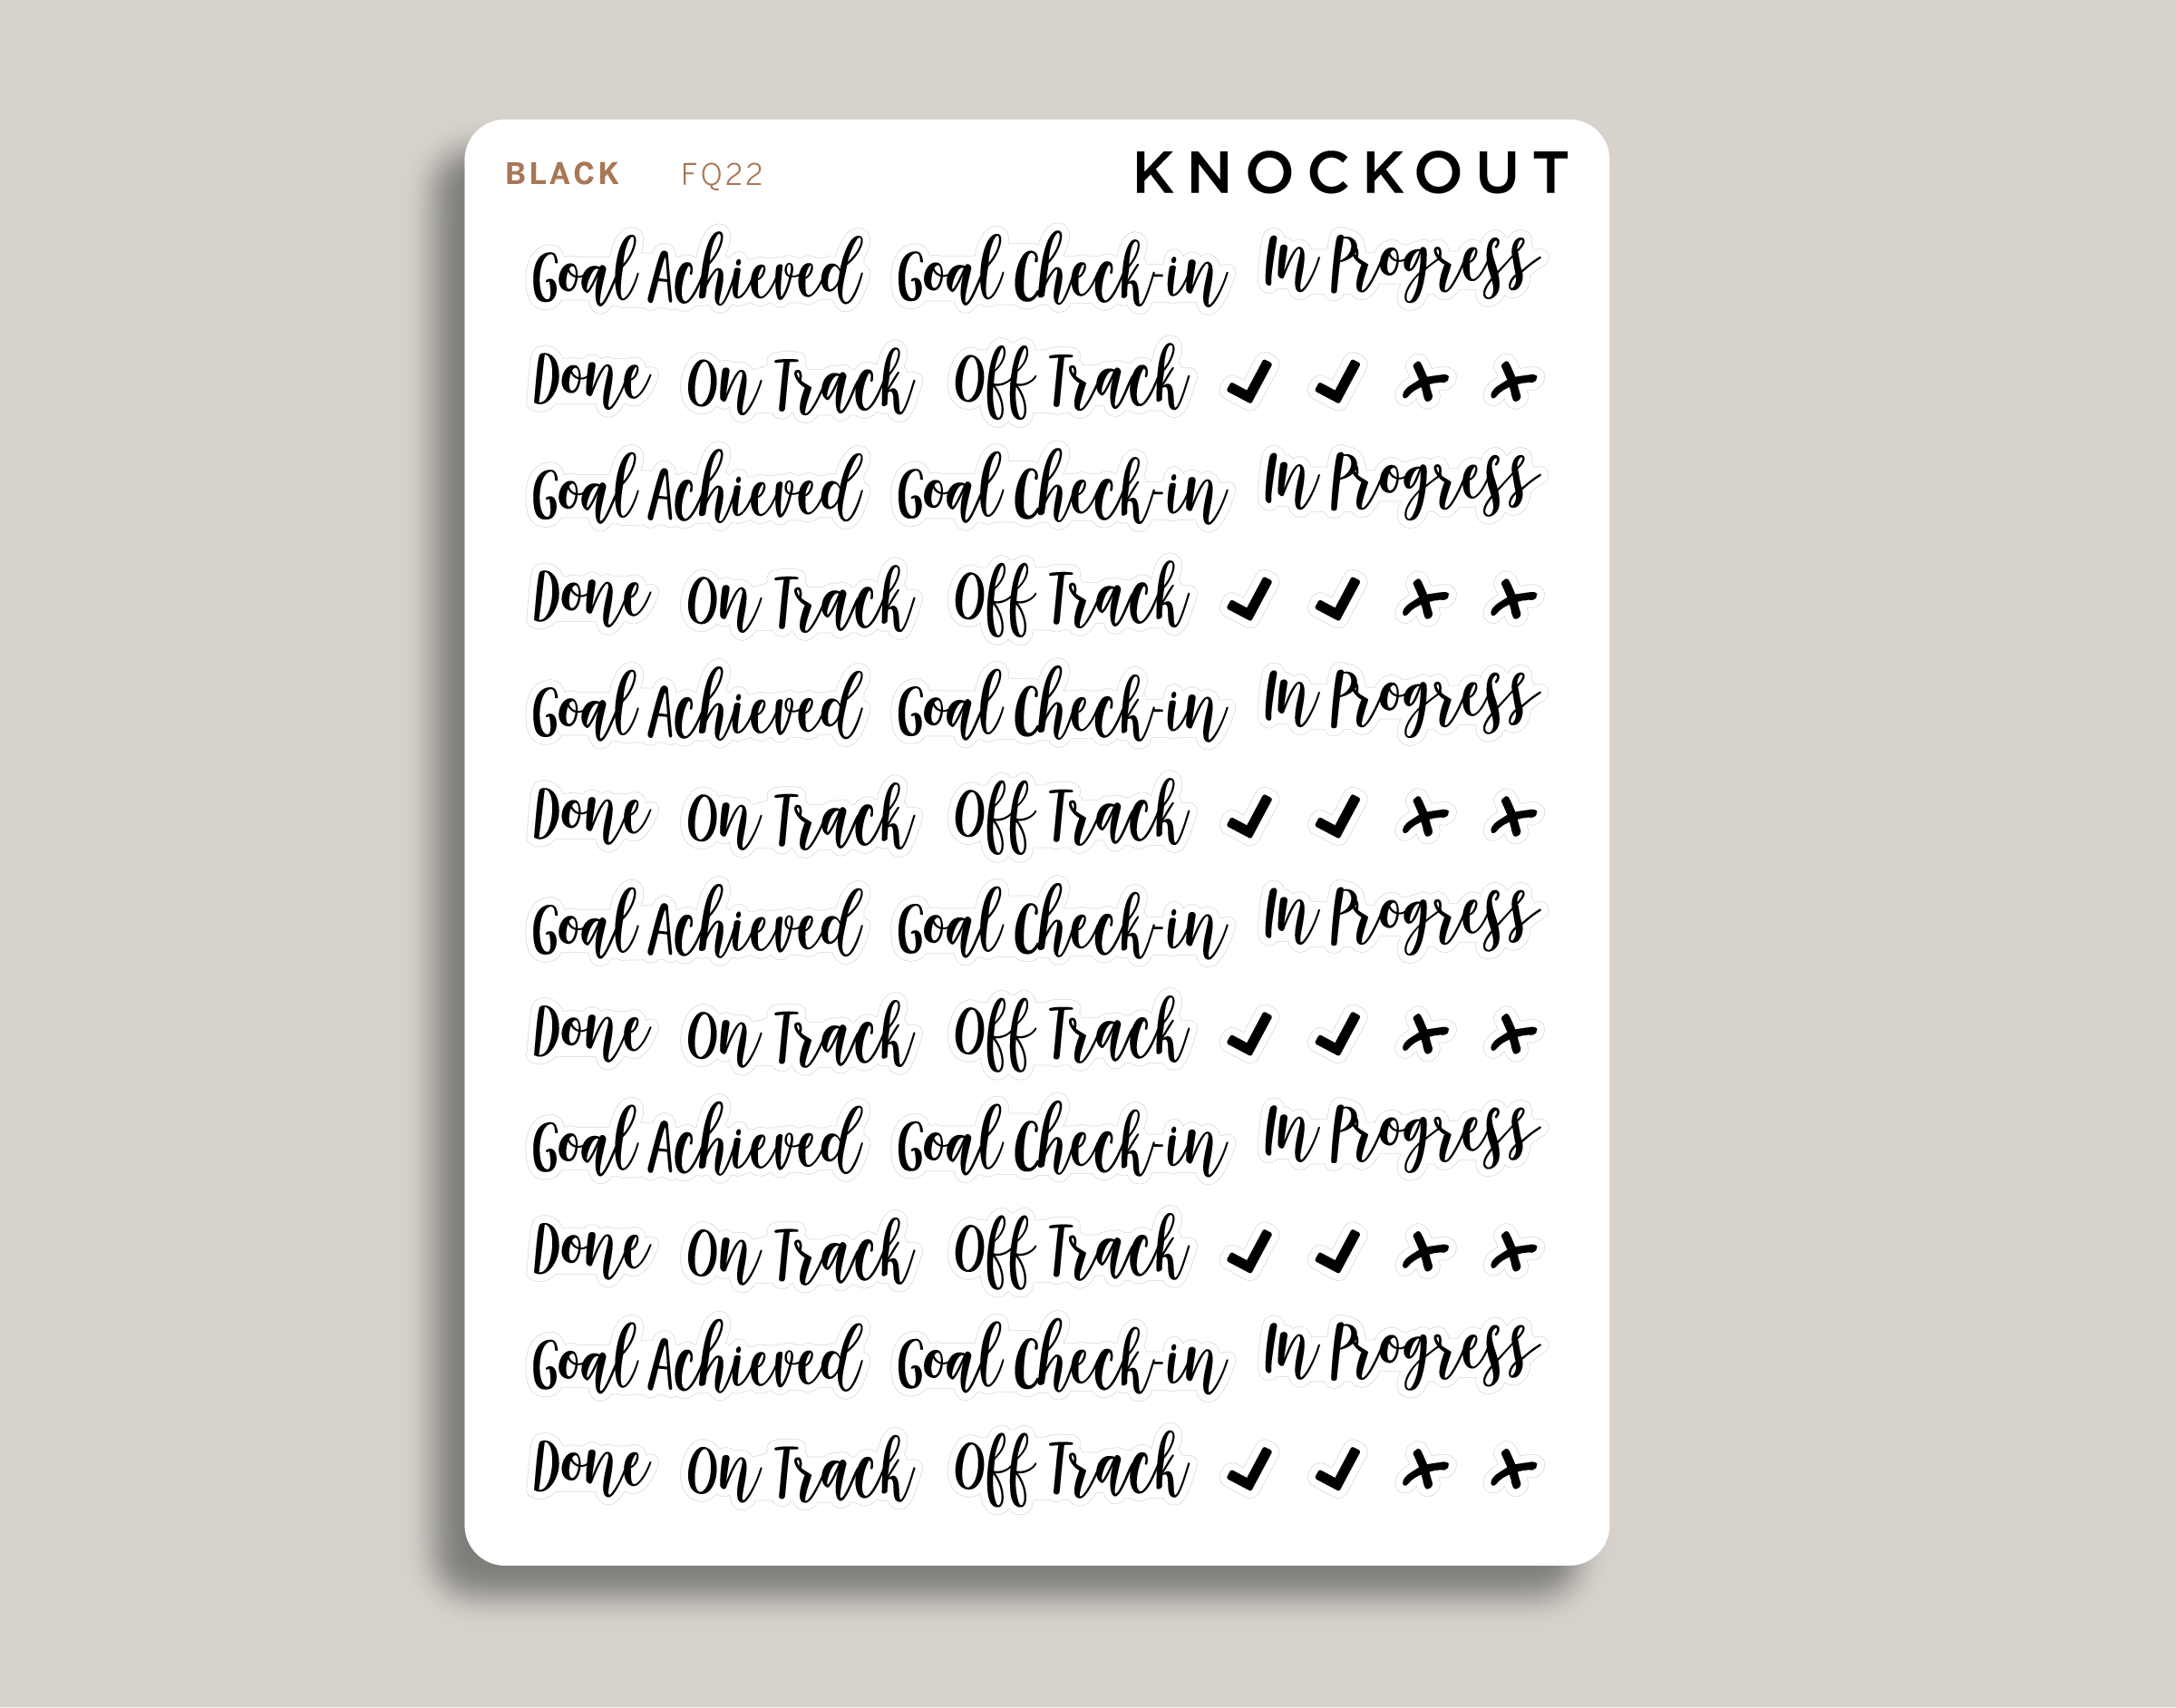 BLACK FQ22 KNOCKOUT
Goal Achieved Goal Check-in In Progress
Done On Track Off Track ✔ ✔ ✗ ✗
Goal Achieved Goal Check-in In Progress
Done On Track Off Track ✔ ✔ ✗ ✗
Goal Achieved Goal Check-in In Progress
Done On Track Off Track ✔ ✔ ✗ ✗
Goal Achieved Goal Check-in In Progress
Done On Track Off Track ✔ ✔ ✗ ✗
Goal Achieved Goal Check-in In Progress
Done On Track Off Track ✔ ✔ ✗ ✗
Goal Achieved Goal Check-in In Progress
Done On Track Off Track ✔ ✔ ✗ ✗